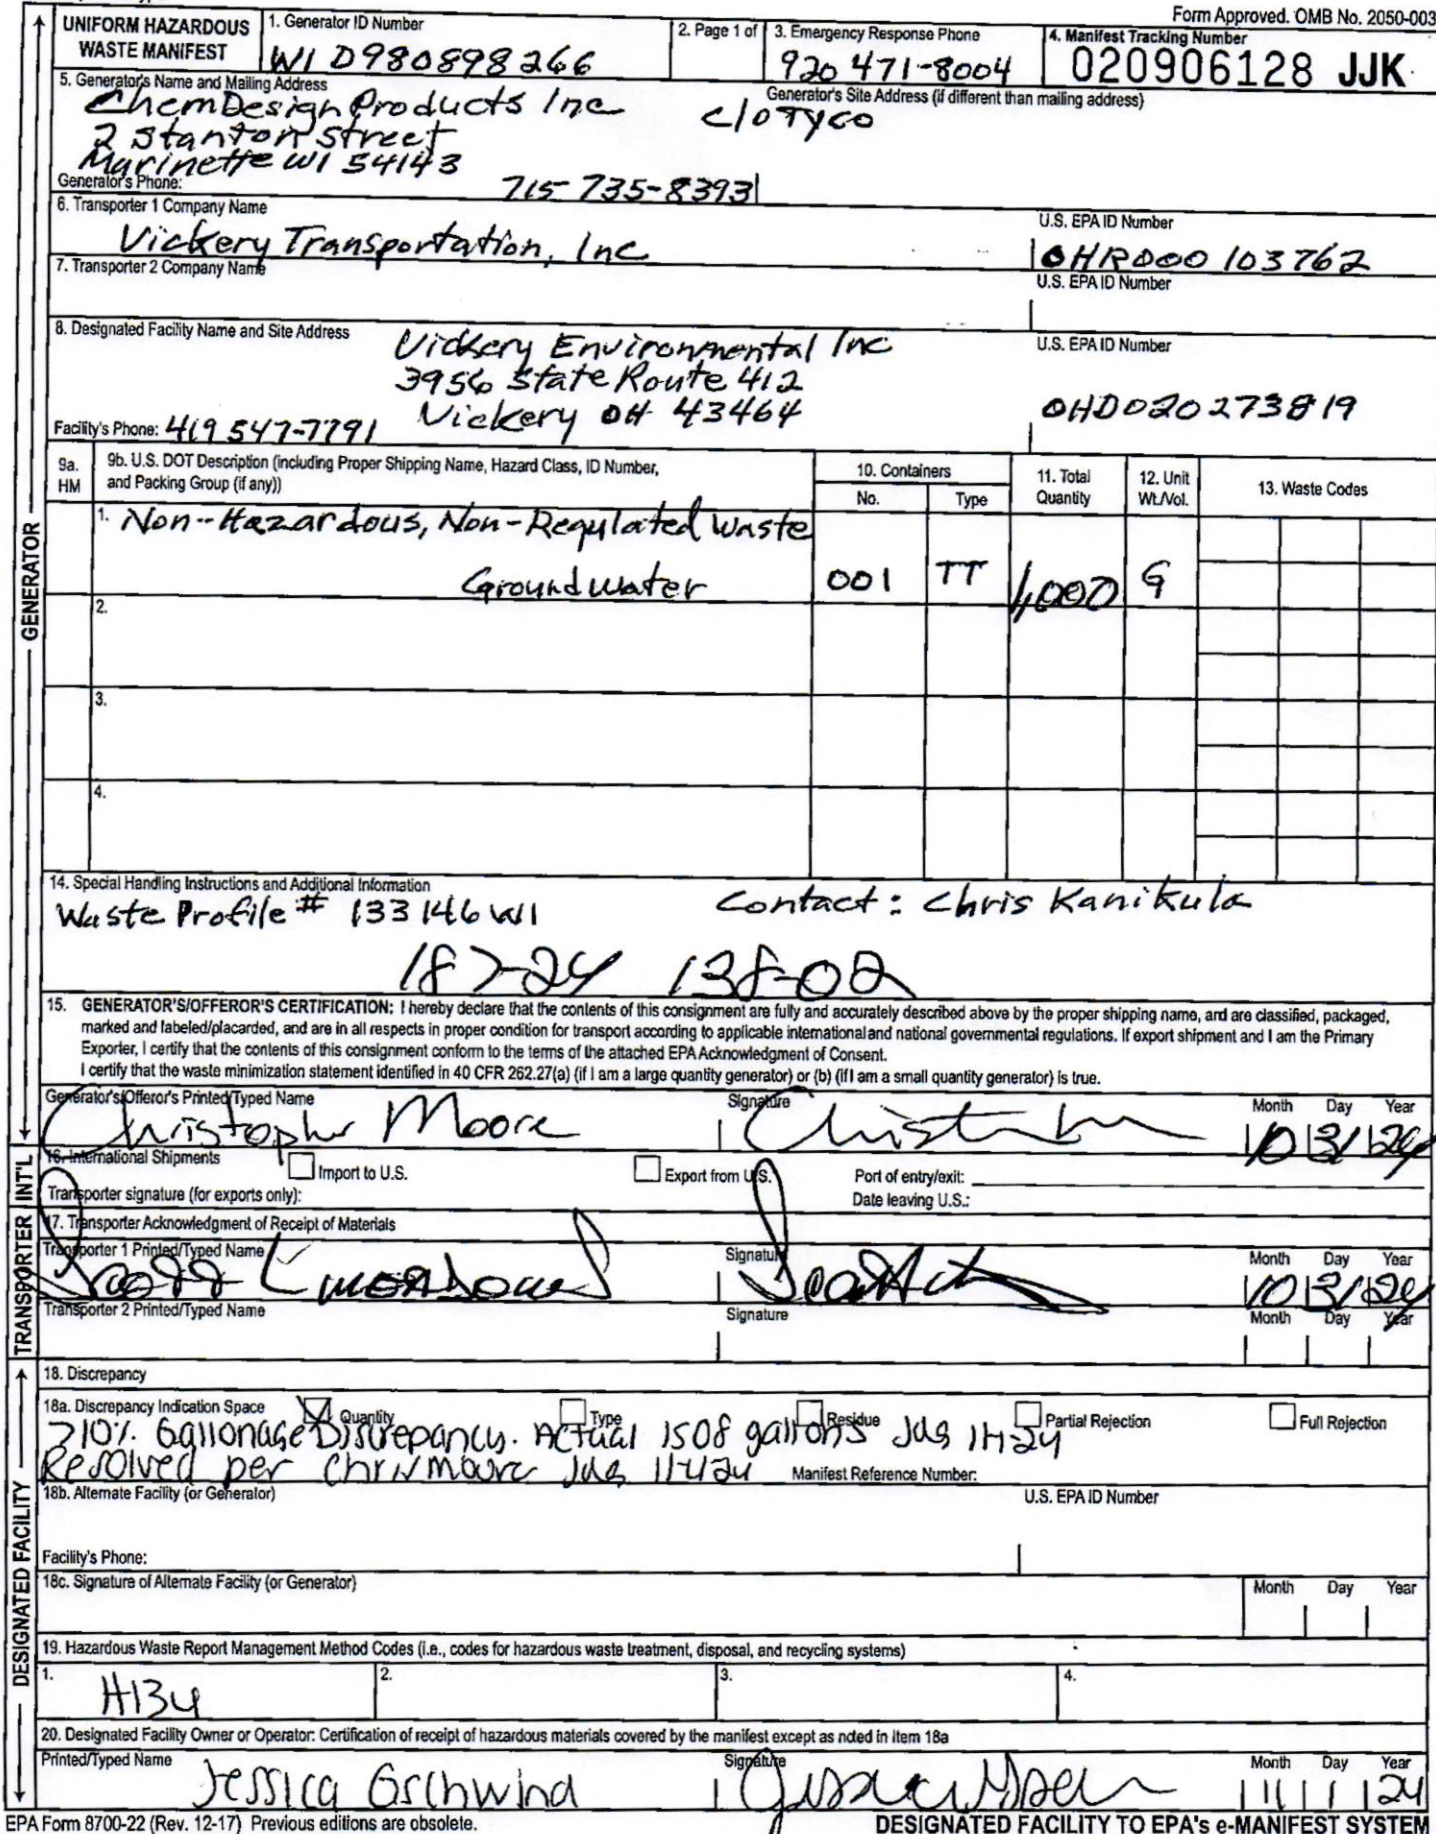 Form Approved. OMB No. 2050-003
UNIFORM HAZARDOUS WASTE MANIFEST
1. Generator ID Number
WID980898266
2. Page 1 of
3. Emergency Response Phone
920 471-8004
4. Manifest Tracking Number
020906128 JJK
5. Generator's Name and Mailing Address
Generator's Site Address (if different than mailing address)
ChemDesign Products Inc c/o Tyco
2 Stanton Street
Marinette WI 54143
Generator's Phone: 715-735-8393
6. Transporter 1 Company Name
U.S. EPA ID Number
Vickery Transportation, Inc
OHR000 103762
7. Transporter 2 Company Name
U.S. EPA ID Number
8. Designated Facility Name and Site Address
U.S. EPA ID Number
Vickery Environmental Inc
3956 State Route 412
Vickery OH 43464
OHD020273819
Facility's Phone: 419 547-7791
9a. HM
9b. U.S. DOT Description (including Proper Shipping Name, Hazard Class, ID Number, and Packing Group (if any))
10. Containers
No.
Type
11. Total Quantity
12. Unit Wt./Vol.
13. Waste Codes
1. Non-Hazardous, Non-Regulated Waste
Groundwater 001 TT 1,000 G
2.
3.
4.
14. Special Handling Instructions and Additional Information
Waste Profile # 133146WI Contact: Chris Kanikula
187-24 138-02
15. GENERATOR'S/OFFEROR'S CERTIFICATION: I hereby declare that the contents of this consignment are fully and accurately described above by the proper shipping name, and are classified, packaged,
marked and labeled/placarded, and are in all respects in proper condition for transport according to applicable international and national governmental regulations. If export shipment and I am the Primary
Exporter, I certify that the contents of this consignment conform to the terms of the attached EPA Acknowledgment of Consent.
I certify that the waste minimization statement identified in 40 CFR 262.27(a) (if I am a large quantity generator) or (b) (if I am a small quantity generator) is true.
Generator's/Offeror's Printed/Typed Name Signature Month Day Year
Christopher Moore 10 31 24
16. International Shipments Import to U.S. Export from U.S. Port of entry/exit:
Transporter signature (for exports only): Date leaving U.S.:
17. Transporter Acknowledgment of Receipt of Materials
Transporter 1 Printed/Typed Name Signature Month Day Year
Scott 10 31 24
Transporter 2 Printed/Typed Name Signature Month Day Year
18. Discrepancy
18a. Discrepancy Indication Space Quantity Type Residue Partial Rejection Full Rejection
>10% Gallonage Discrepancy. Actual 1508 gallons
Resolved per Chris Moore
Manifest Reference Number:
18b. Alternate Facility (or Generator) U.S. EPA ID Number
Facility's Phone:
18c. Signature of Alternate Facility (or Generator) Month Day Year
19. Hazardous Waste Report Management Method Codes (i.e., codes for hazardous waste treatment, disposal, and recycling systems)
1. H134 2. 3. 4.
20. Designated Facility Owner or Operator: Certification of receipt of hazardous materials covered by the manifest except as noted in Item 18a
Printed/Typed Name Signature Month Day Year
Jessica Gschwind 11 1 24
EPA Form 8700-22 (Rev. 12-17) Previous editions are obsolete.
DESIGNATED FACILITY TO EPA's e-MANIFEST SYSTEM
GENERATOR
INT'L
TRANSPORTER
DESIGNATED FACILITY